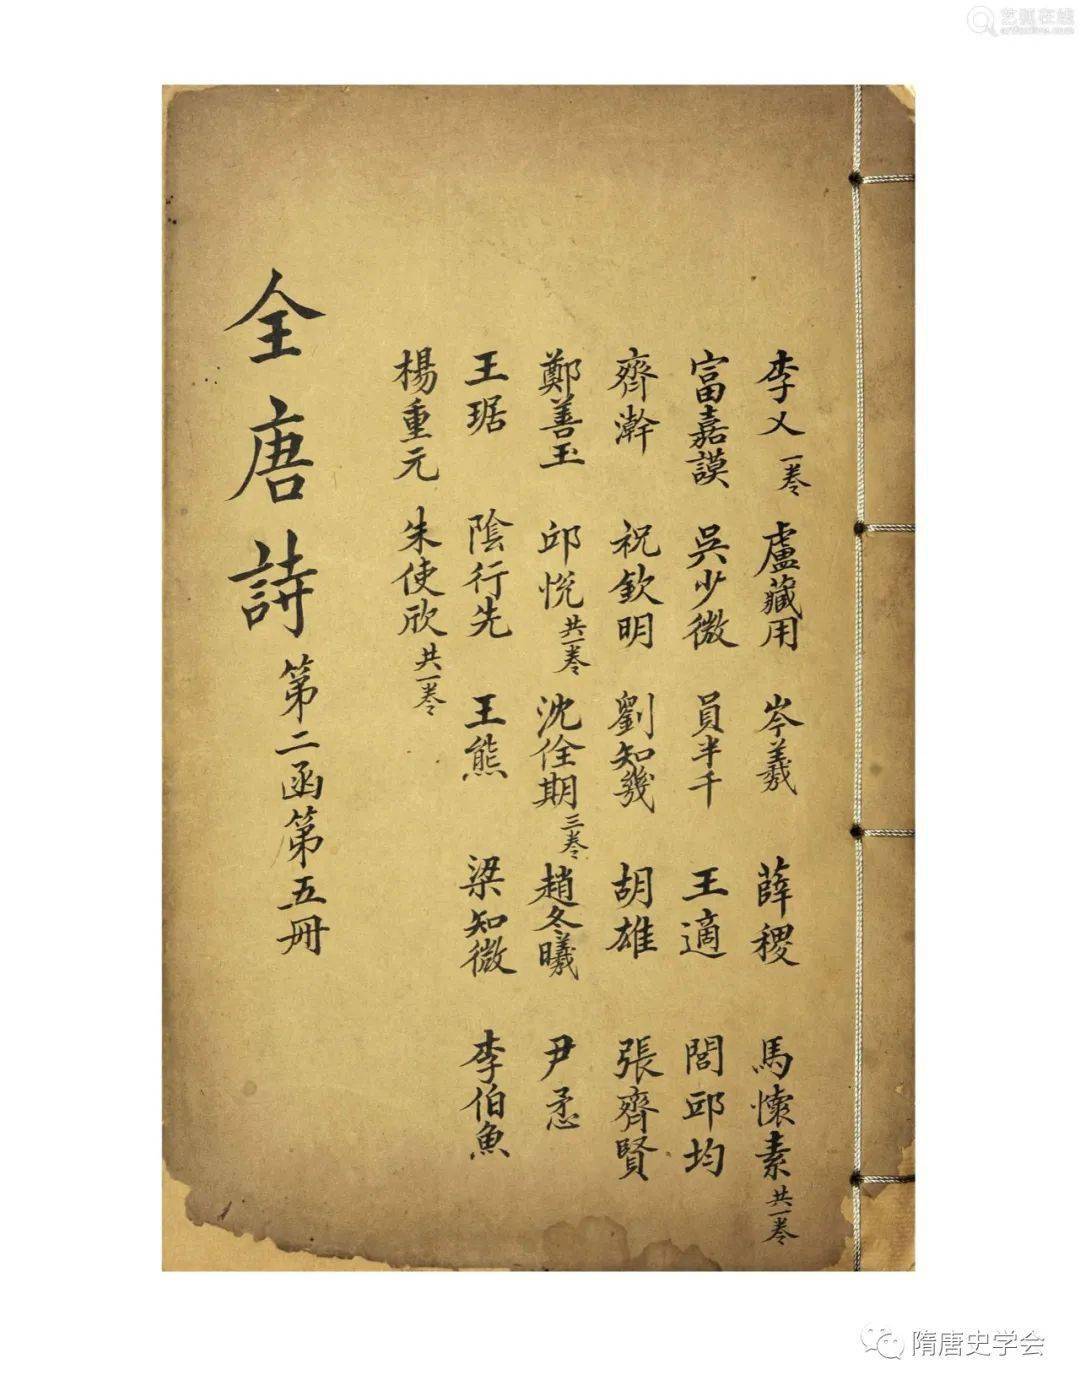 艺狐在线
artfoxlive.com
李乂 一卷 盧藏用 岑羲 薛稷 馬懷素 共一卷
富嘉謨 吳少微 員半千 王適 閭邱均
齊澣 祝欽明 劉知幾 胡雄 張齊賢
鄭善玉 邱悅 共一卷 沈佺期 三卷 趙冬曦 尹懋
王琚 陰行先 王熊 梁知微 李伯魚
楊重元 朱使欣 共一卷
全唐詩 第二函第五冊
隋唐史学会